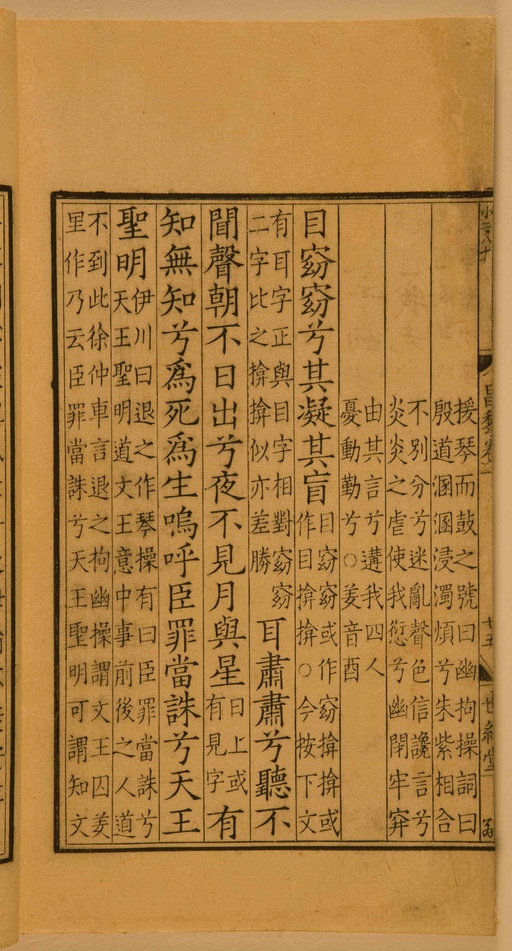 昌黎卷一
七五
世綵堂
援琴而鼓之號曰幽拘操詞曰
殷道溷溷浸濁煩兮朱紫相合
不別分兮迷亂聲色信讒言兮
炎炎之虐使我愆兮幽閉牢穽
由其言兮遘我四人
憂動勤兮○羑音酉
目窈窈兮其凝其盲
日窈窈或作窈揜揜或
作目揜揜○今按下文
有耳字正與目字相對窈窈
二字比之揜揜似亦差勝
耳肅肅兮聽不
聞聲朝不日出兮夜不見月與星
日上或
有見字
有
知無知兮爲死爲生嗚呼臣罪當誅兮天王
聖明
伊川曰退之作琴操有曰臣罪當誅兮
天王聖明道文王意中事前後之人道
不到此徐仲車言退之拘幽操謂文王囚羑
里作乃云臣罪當誅兮天王聖明可謂知文